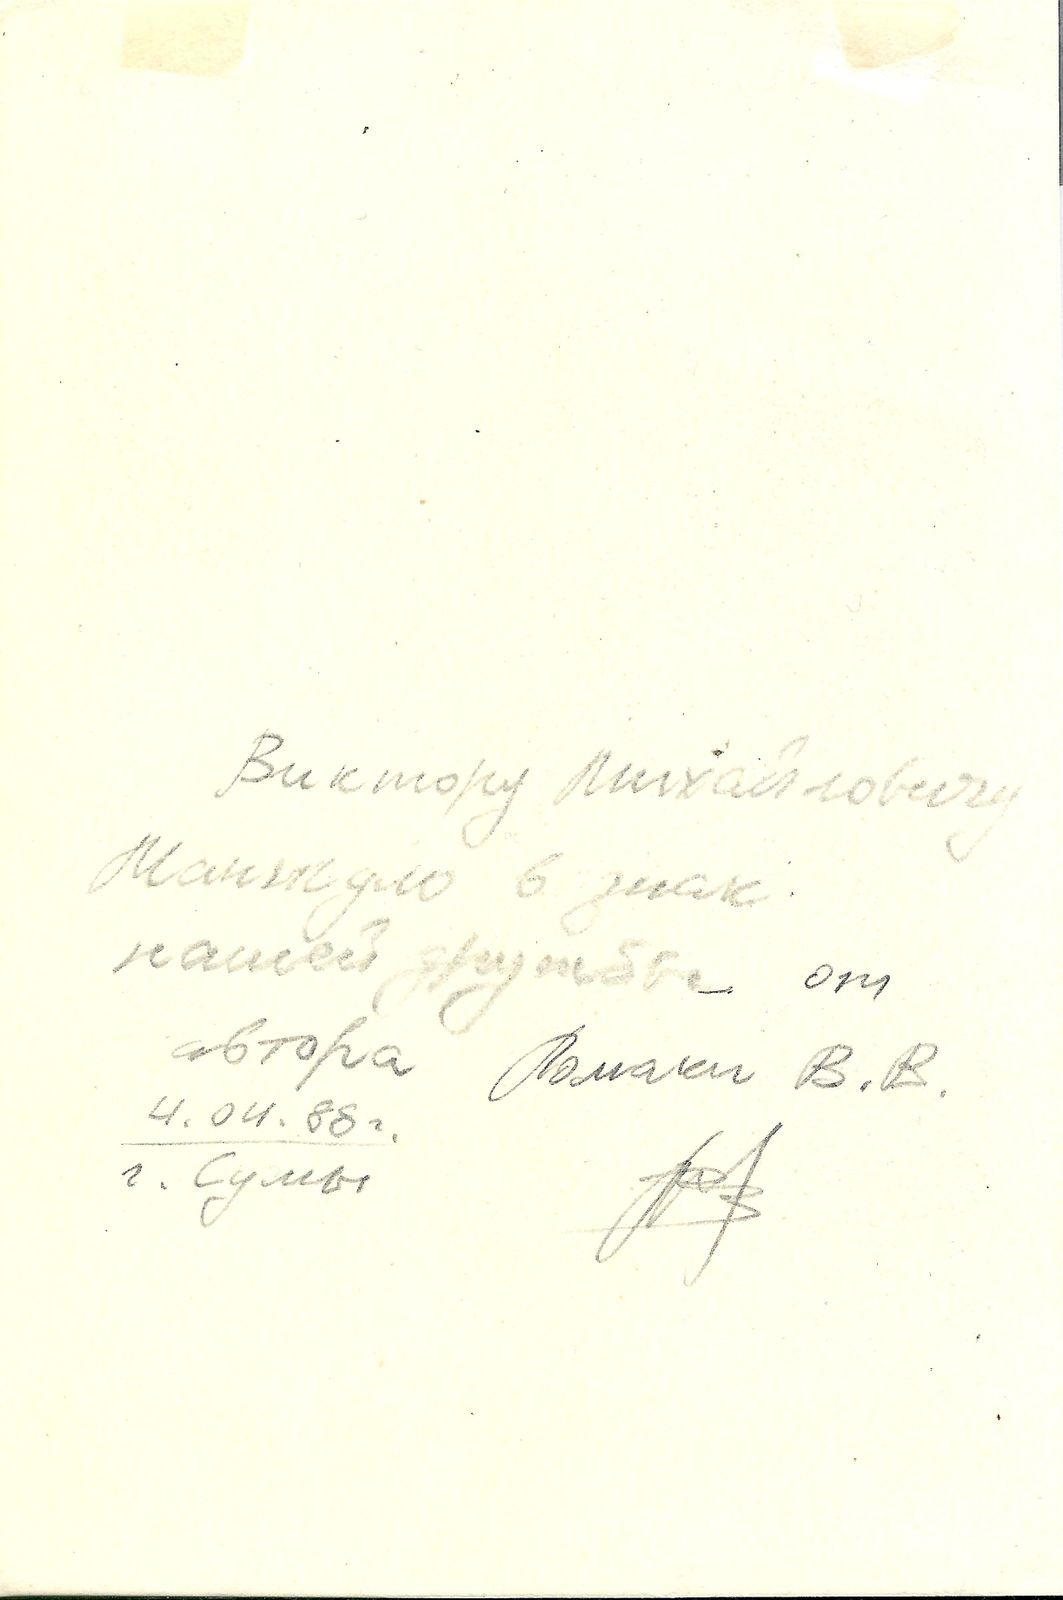 Виктору Михайловичу
Манжуло в знак
нашей дружбы от
автора В.В.
4.04.88г.
г. Сумы